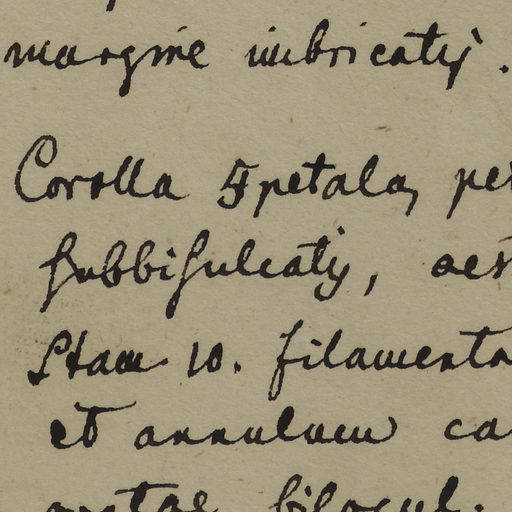 margine imbricatis.
Corolla 5petala, pe
subbisulcatis, aes
Stam 10. filamenta
et annulum ca
bilocul.